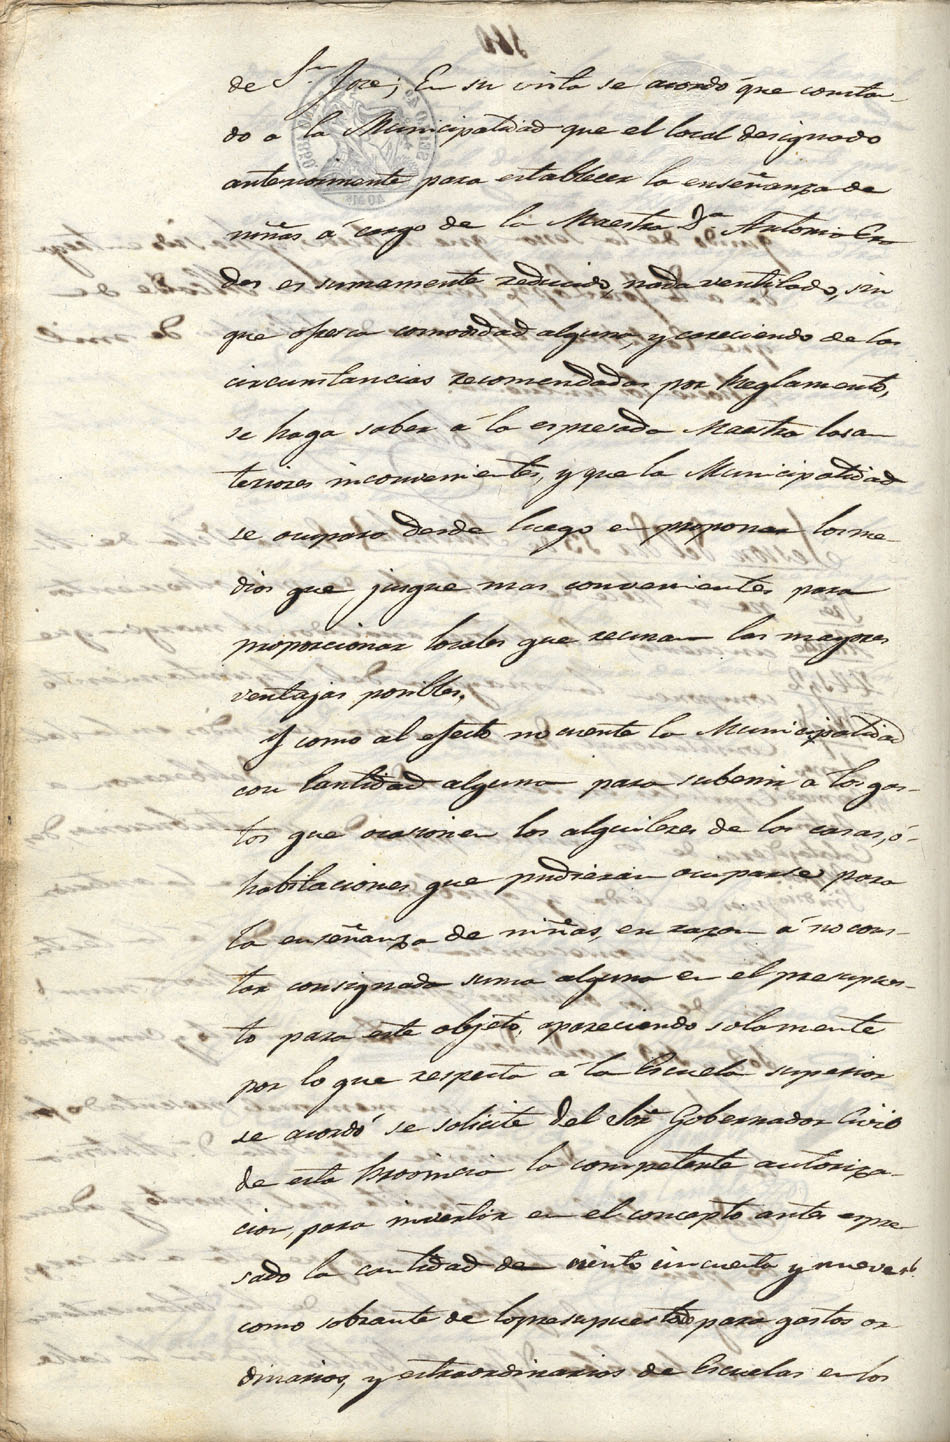 de Sn. Jose; En su vista se acordó que constan
do a la Municipalidad que el local designado
anteriormente para establecer la enseñanza de
niñas á cargo de la Maestra Da. Antonia
des es sumamente reducido, nada ventilado, sin
que ofresca comodidad alguna, y careciendo de las
circunstancias recomendadas por Reglamento,
se haga saber á la espresada Maestra los an
teriores inconvenientes, y que la Municipalidad
se ocupara desde luego en proponer los me
dios que jusgue mas convenientes para
proporcionar locales que reunan las mayores
ventajas posibles.
Y como al efecto no cuente la Municipalidad
con Cantidad alguna para subenir a los gas-
tos que ocasionen los alquileres de las casas, ó-
habitaciones que pudieran ocuparse para
la enseñanza de niñas, en razon á no cons-
tar consignada suma alguna en el presupues-
to para este objeto, apareciendo solamente
por lo que respecta á la Escuela superior
se acordó se solicite del Sor. Gobernador Civil
de esta Provincia la competente autoriza-
cion, para invertir en el concepto antes espre
sado la cantidad de ciento cincuenta y nueve
como sobrante de lo presupuestado para gastos or
dinarios, y estraordinarios de Escuelas en los